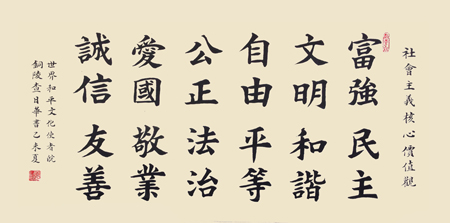 社會主義核心價值觀
富強民主
文明和諧
自由平等
公正法治
愛國敬業
誠信友善
世界和平文化使者皖
銅陵查日華書乙未夏